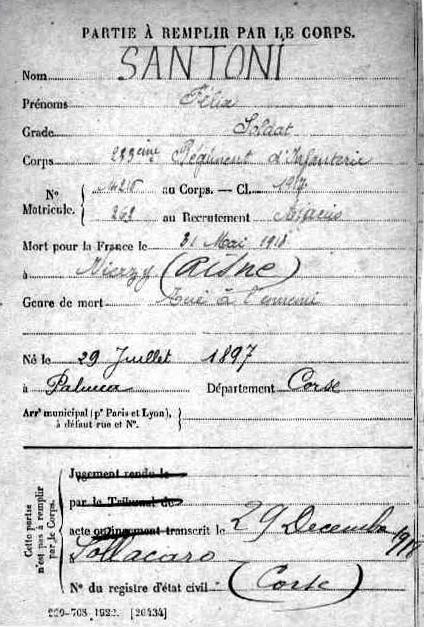 PARTIE À REMPLIR PAR LE CORPS.
Nom SANTONI
Prénoms Félix
Grade Soldat
Corps 233eme Régiment d'Infanterie
N° Matricule. { 4216 au Corps. — Cl. 1917
262 au Recrutement Ajaccio
Mort pour la France le 31 Mai 1918
à Vierzy (Aisne)
Genre de mort Tué à l'ennemi
Né le 29 Juillet 1897
à Département Corse
Arrt municipal (pr Paris et Lyon),
à défaut rue et N°.
Cette partie n'est pas à remplir par le Corps.
Jugement rendu le
par le Tribunal de
acte ou jugement transcrit le 29 Decembre 1918
à Sollacaro
N° du registre d'état civil (Corse)
1922. [26434]